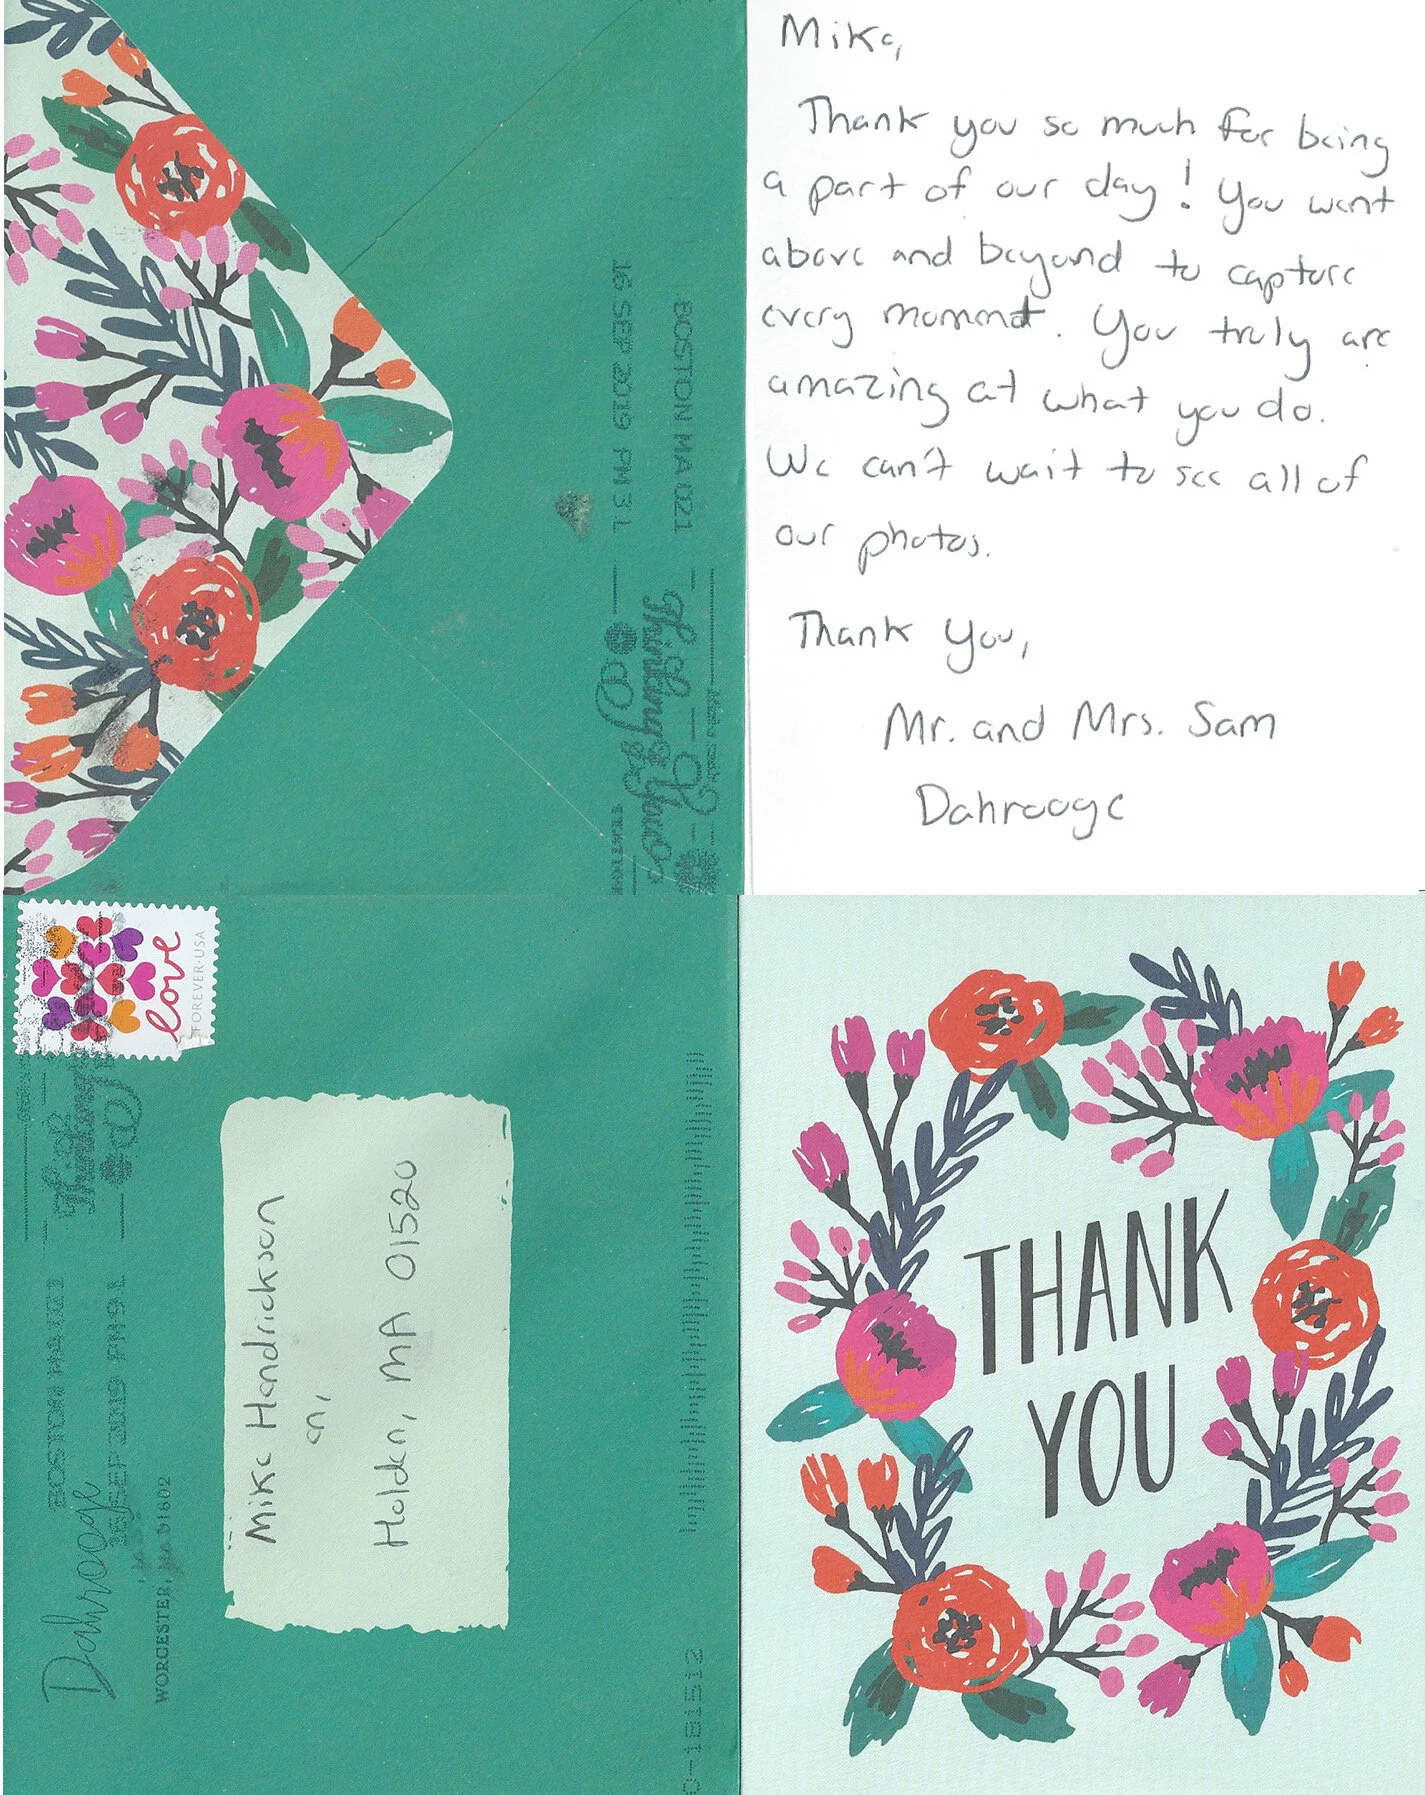 Mike,
Thank you so much for being
a part of our day! You went
above and beyond to capture
every moment. You truly are
amazing at what you do.
We can't wait to see all of
our photos.
Thank You,
Mr. and Mrs. Sam
Dahrooge
BOSTON MA 021
16 SEP 2019 PM 3 L
Thinking of You
love
FOREVER·USA
Thinking
BOSTON MA 021
16 SEP 2019 PM 9 L
Dahrooge
WORCESTER, 01602
Mike Hendrickson
Holden, MA 01520
THANK
YOU